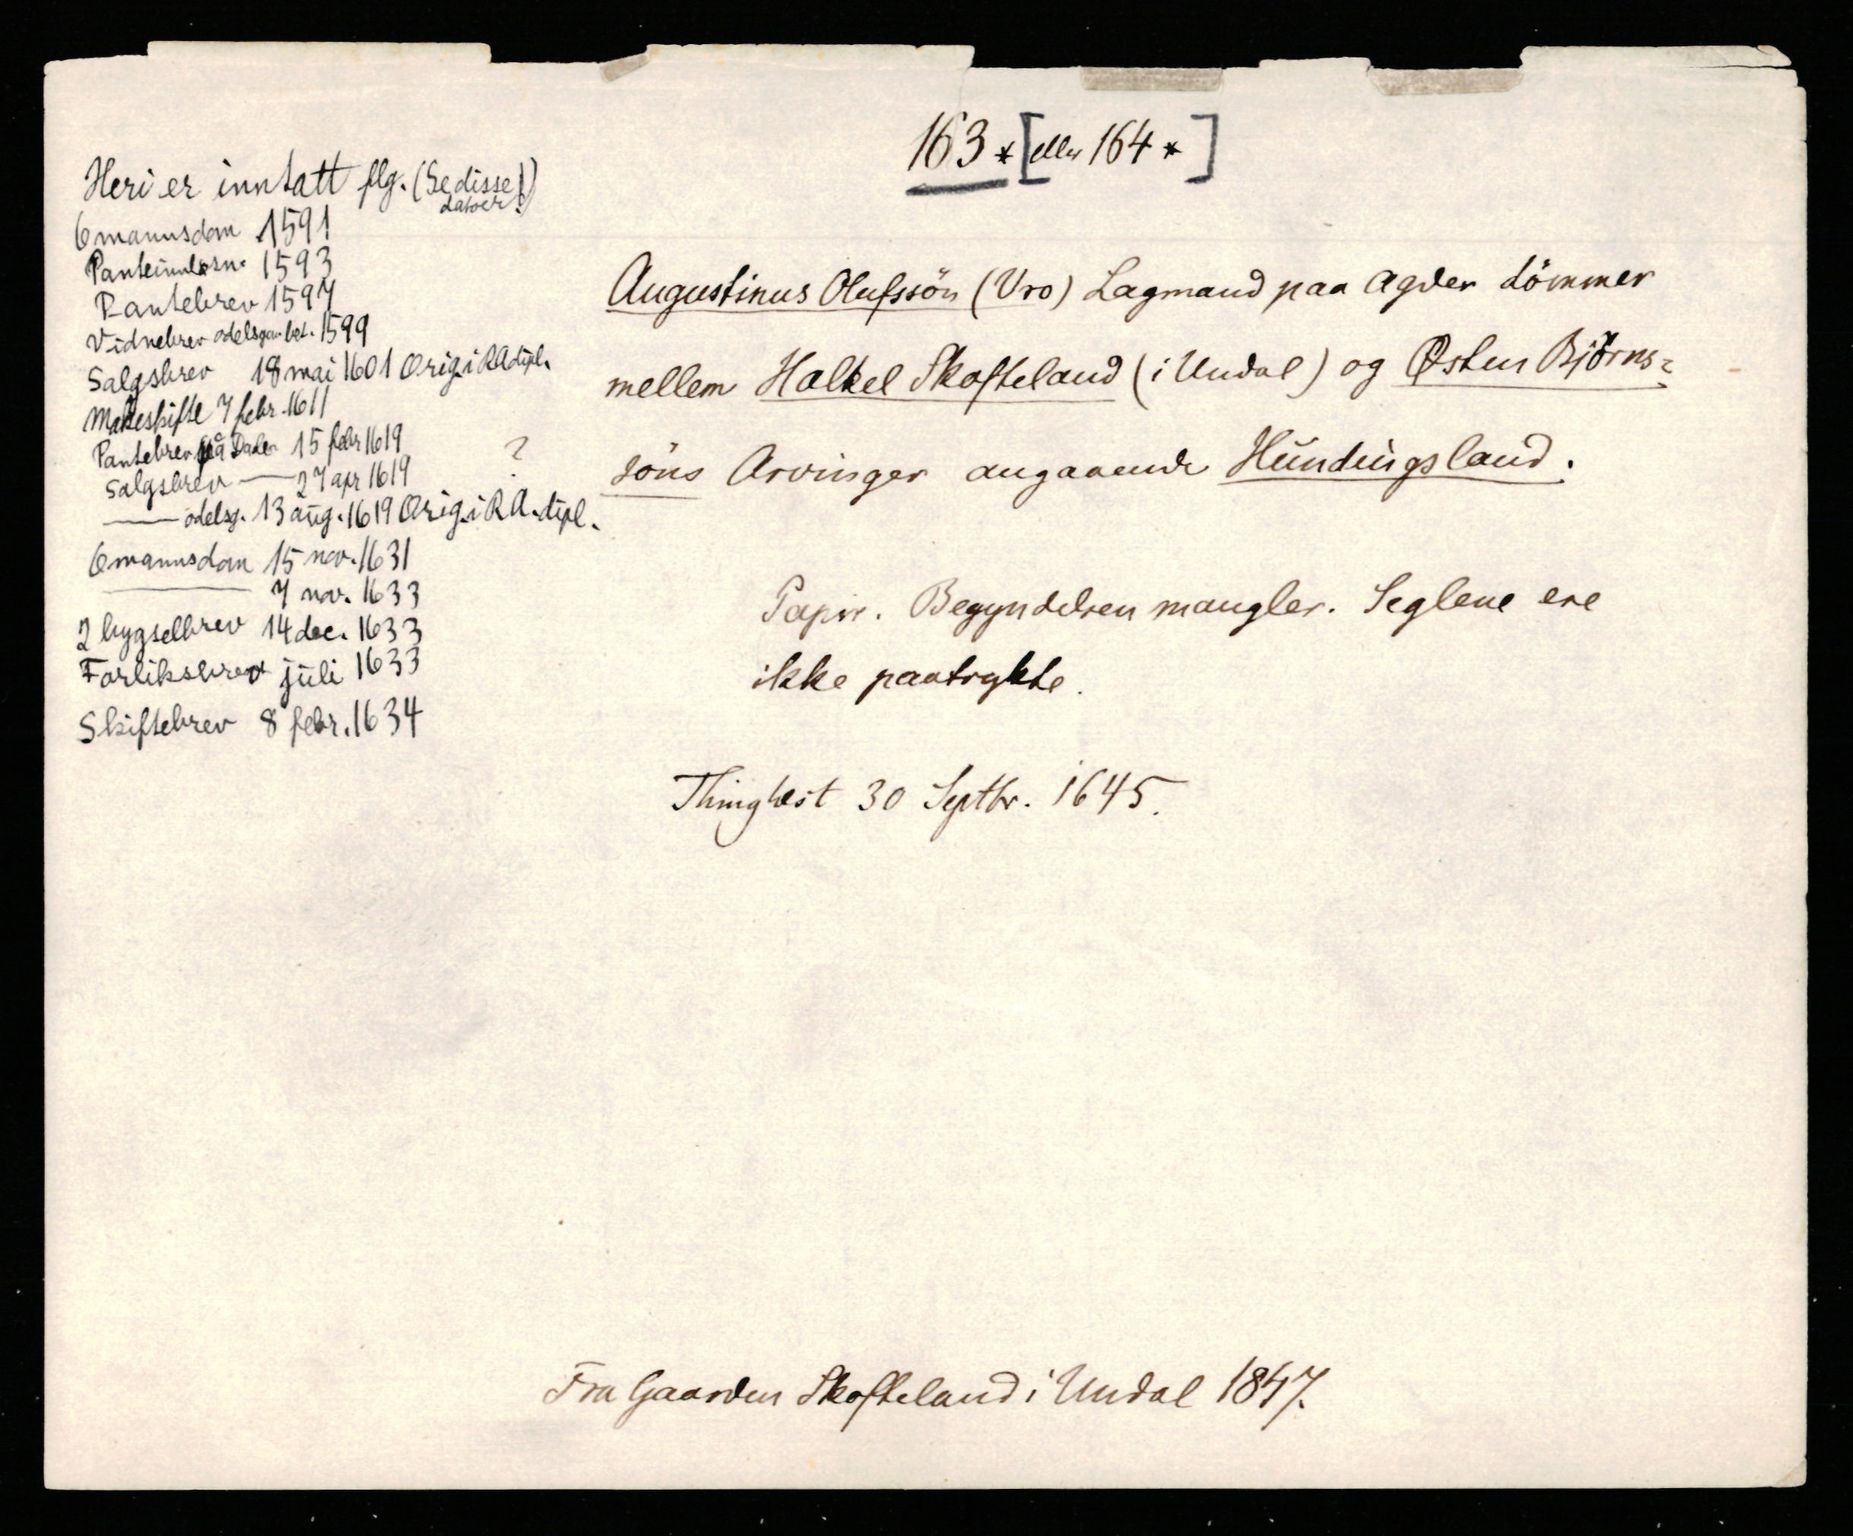 163 * [eller 164 *]
Heri er inntatt flg. (Se disse
datoer!)
6mannsdom 1591
Panteinnløsn. 1593
Pantebrev 1597
Vidnebrev odelsgm. 1599
Salgsbrev 18 mai 1601 Orig. i RA dipl.
Makeskifte 7 febr. 1611
Pantebrev på Dalen 15 febr 1619 ?
Salgsbrev — 27 apr 1619
— odelsg. 13 aug. 1619 Orig. i R A. dipl.
6mannsdom 15 nov. 1631
— 7 nov. 1633
2 bygselbrev 14 dec. 1633
Forliksbrev juli 1633
Skiftebrev 8 febr. 1634
Augustinus Olufssön (Uro) Lagmand paa Agder dömmer
mellem Halkel Skofteland (i Undal) og Østen Björns=
söns Arvinger angaaende Hundingsland.
Papir. Begyndelsen mangler. Seglene ere
ikke paatrykte.
Thinglæst 30 Septbr. 1645.
Fra Gaarden Skofteland i Undal 1847.